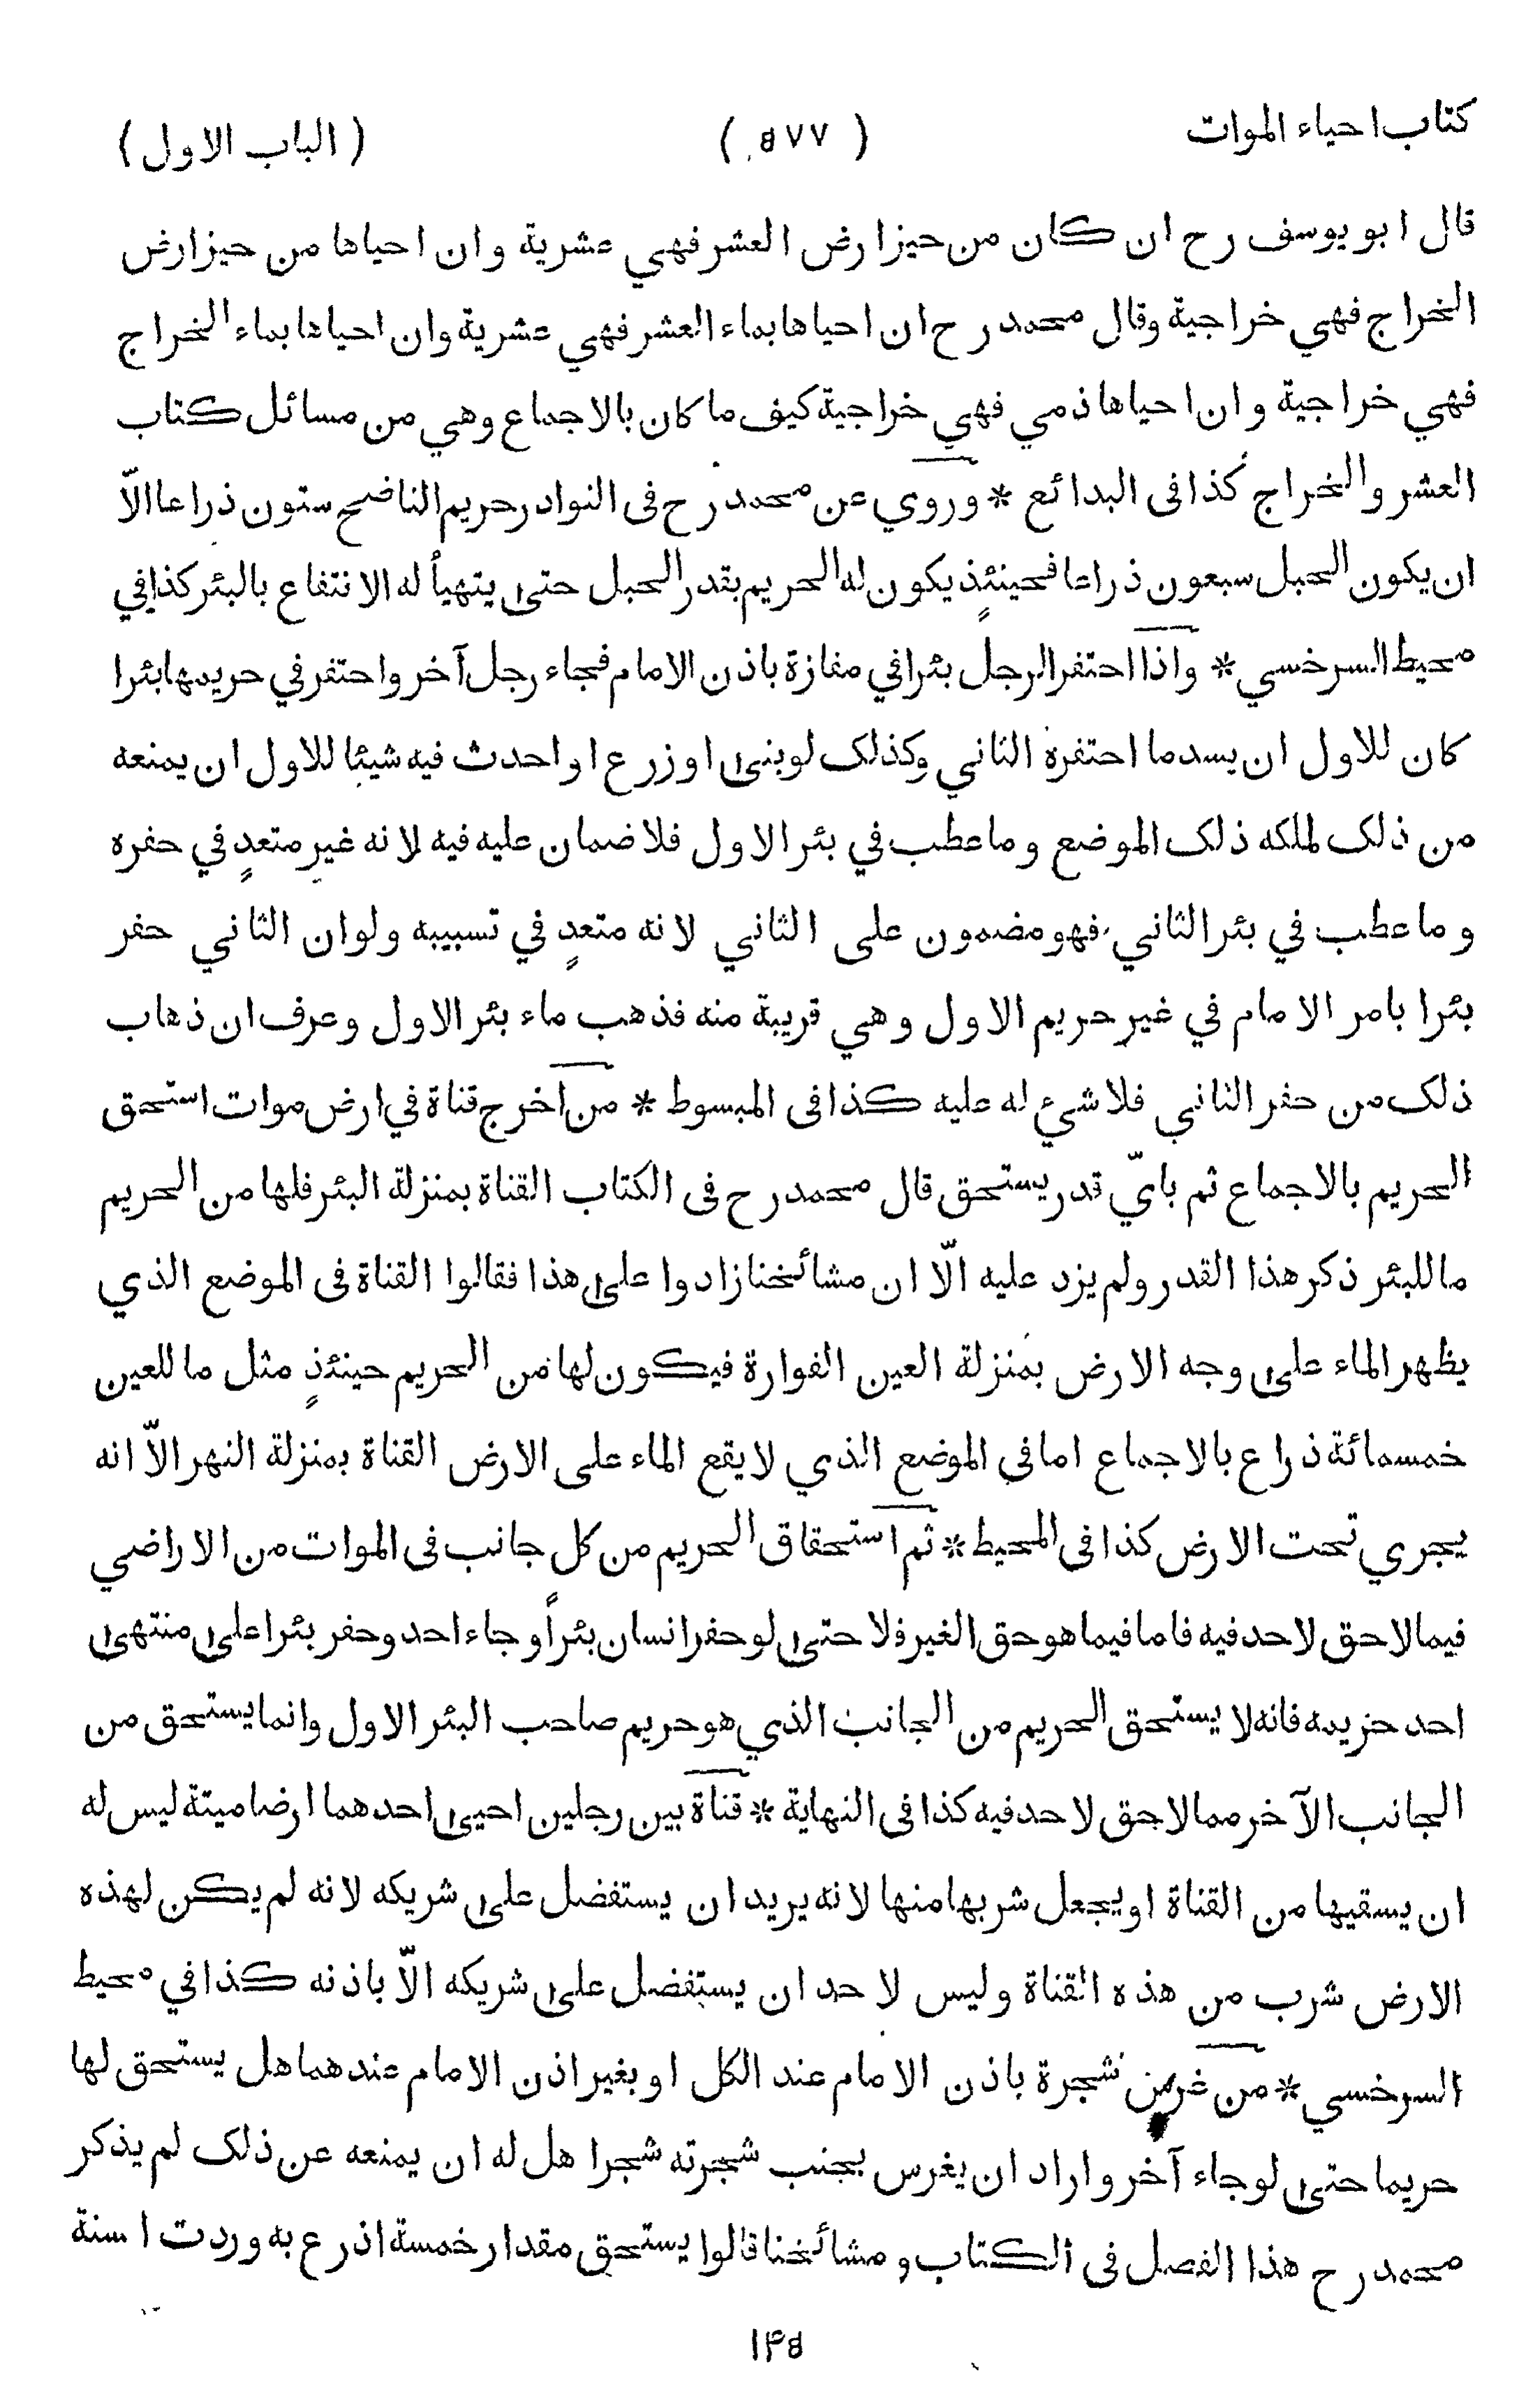 كتاب احياء الموات ( ٥٧٧ ) ( الباب الاول )
قال ابو يوسف رح ان كان من حيز ارض العشر فهي عشرية وان احياها من حيز ارض
الخراج فهي خراجية وقال محمد رح ان احياها بماء العشر فهي عشرية وان احياها بماء الخراج
فهي خراجية وان احياها ذمي فهي خراجية كيف ما كان بالاجماع وهي من مسائل كتاب
العشر والخراج كذا فى البدائع * وروي عن محمد رح فى النوادر حريم الناضح ستون ذراعا الّا
ان يكون الحبل سبعون ذراعا فحينئذٍ يكون له الحريم بقدر الحبل حتى يتهيأ له الانتفاع بالبئر كذا في
محيط السرخسي * واذا احتفر الرجل بئرا في مفازة باذن الامام فجاء رجل آخر واحتفر في حريمها بئرا
كان للاول ان يسد ما احتفره الثاني وكذلك لو بنى او زرع او احدث فيه شيئا للاول ان يمنعه
من ذلك لملكه ذلك الموضع وما عطب في بئر الاول فلا ضمان عليه فيه لانه غير متعدٍ في حفره
وما عطب في بئر الثاني فهو مضمون على الثاني لانه متعدٍ في تسبيبه ولو ان الثاني حفر
بئرا بامر الامام في غير حريم الاول وهي قريبة منه فذهب ماء بئر الاول وعرف ان ذهاب
ذلك من حفر الثاني فلا شيء له عليه كذا فى المبسوط * من اخرج قناة في ارض موات استحق
الحريم بالاجماع ثم بايّ قدر يستحق قال محمد رح فى الكتاب القناة بمنزلة البئر فلها من الحريم
ما للبئر ذكر هذا القدر ولم يزد عليه الّا ان مشائخنا زادوا على هذا فقالوا القناة فى الموضع الذي
يظهر الماء على وجه الارض بمنزلة العين الفوارة فيكون لها من الحريم حينئذٍ مثل ما للعين
خمسمائة ذراع بالاجماع اما في الموضع الذي لا يقع الماء على الارض القناة بمنزلة النهر الّا انه
يجري تحت الارض كذا فى المحيط * ثم استحقاق الحريم من كل جانب فى الموات من الاراضي
فيما لا حق لاحد فيه فاما فيما هو حق الغير فلا حتى لو حفر انسان بئراً وجاء احد وحفر بئرا على منتهى
احد حريمه فانه لا يستحق الحريم من الجانب الذي هو حريم صاحب البئر الاول وانما يستحق من
الجانب الآخر مما لا حق لاحد فيه كذا فى النهاية * قناة بين رجلين احيى احدهما ارضا ميتة ليس له
ان يسقيها من القناة او يجعل شربها منها لانه يريد ان يستفضل على شريكه لانه لم يكن لهذه
الارض شرب من هذه القناة وليس لاحد ان يستفضل على شريكه الّا باذنه كذا في محيط
السرخسي * من غرس شجرة باذن الامام عند الكل او بغير اذن الامام عندهما هل يستحق لها
حريما حتى لو جاء آخر واراد ان يغرس بجنب شجرته شجرا هل له ان يمنعه عن ذلك لم يذكر
محمد رح هذا الفصل فى الكتاب ومشائخنا قالوا يستحق مقدار خمسة اذرع به وردت ا سنة
١۴٥